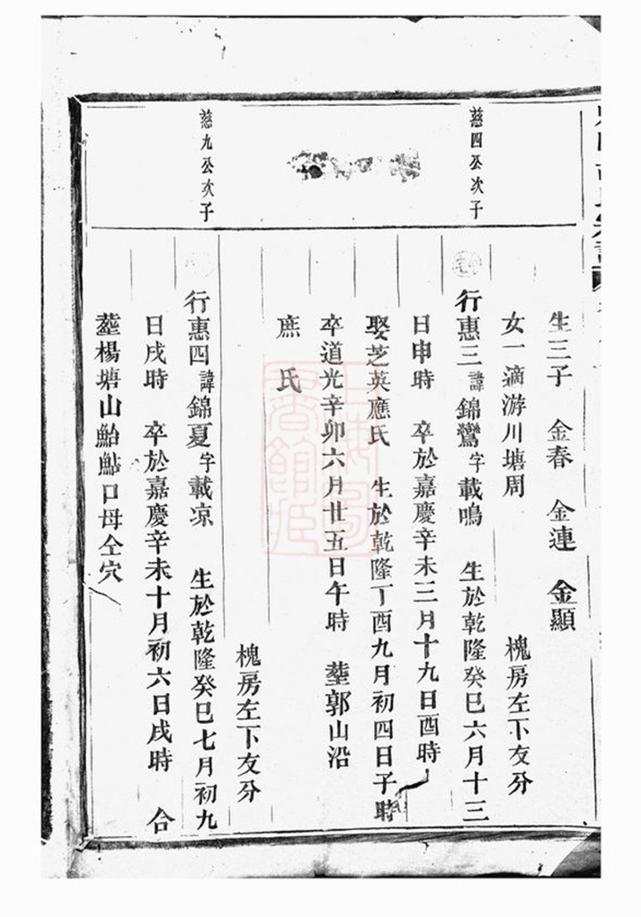 生三子 金春 金連 金顯
女一適游川塘周
槐房左下友分
慈四公次子
行惠三諱錦鸞字載鳴 生於乾隆癸巳六月十三
日申時 卒於嘉慶辛未三月十九日酉時
娶芝英應氏 生於乾隆丁酉九月初四日子時
卒道光辛卯六月廿五日午時 塟郭山沿
庶氏
槐房左下友分
慈九公次子
行惠四諱錦夏字載凉 生於乾隆癸巳七月初九
日戌時 卒於嘉慶辛未十月初六日戌時 合
塟楊塘山鮐鮎口母仝穴